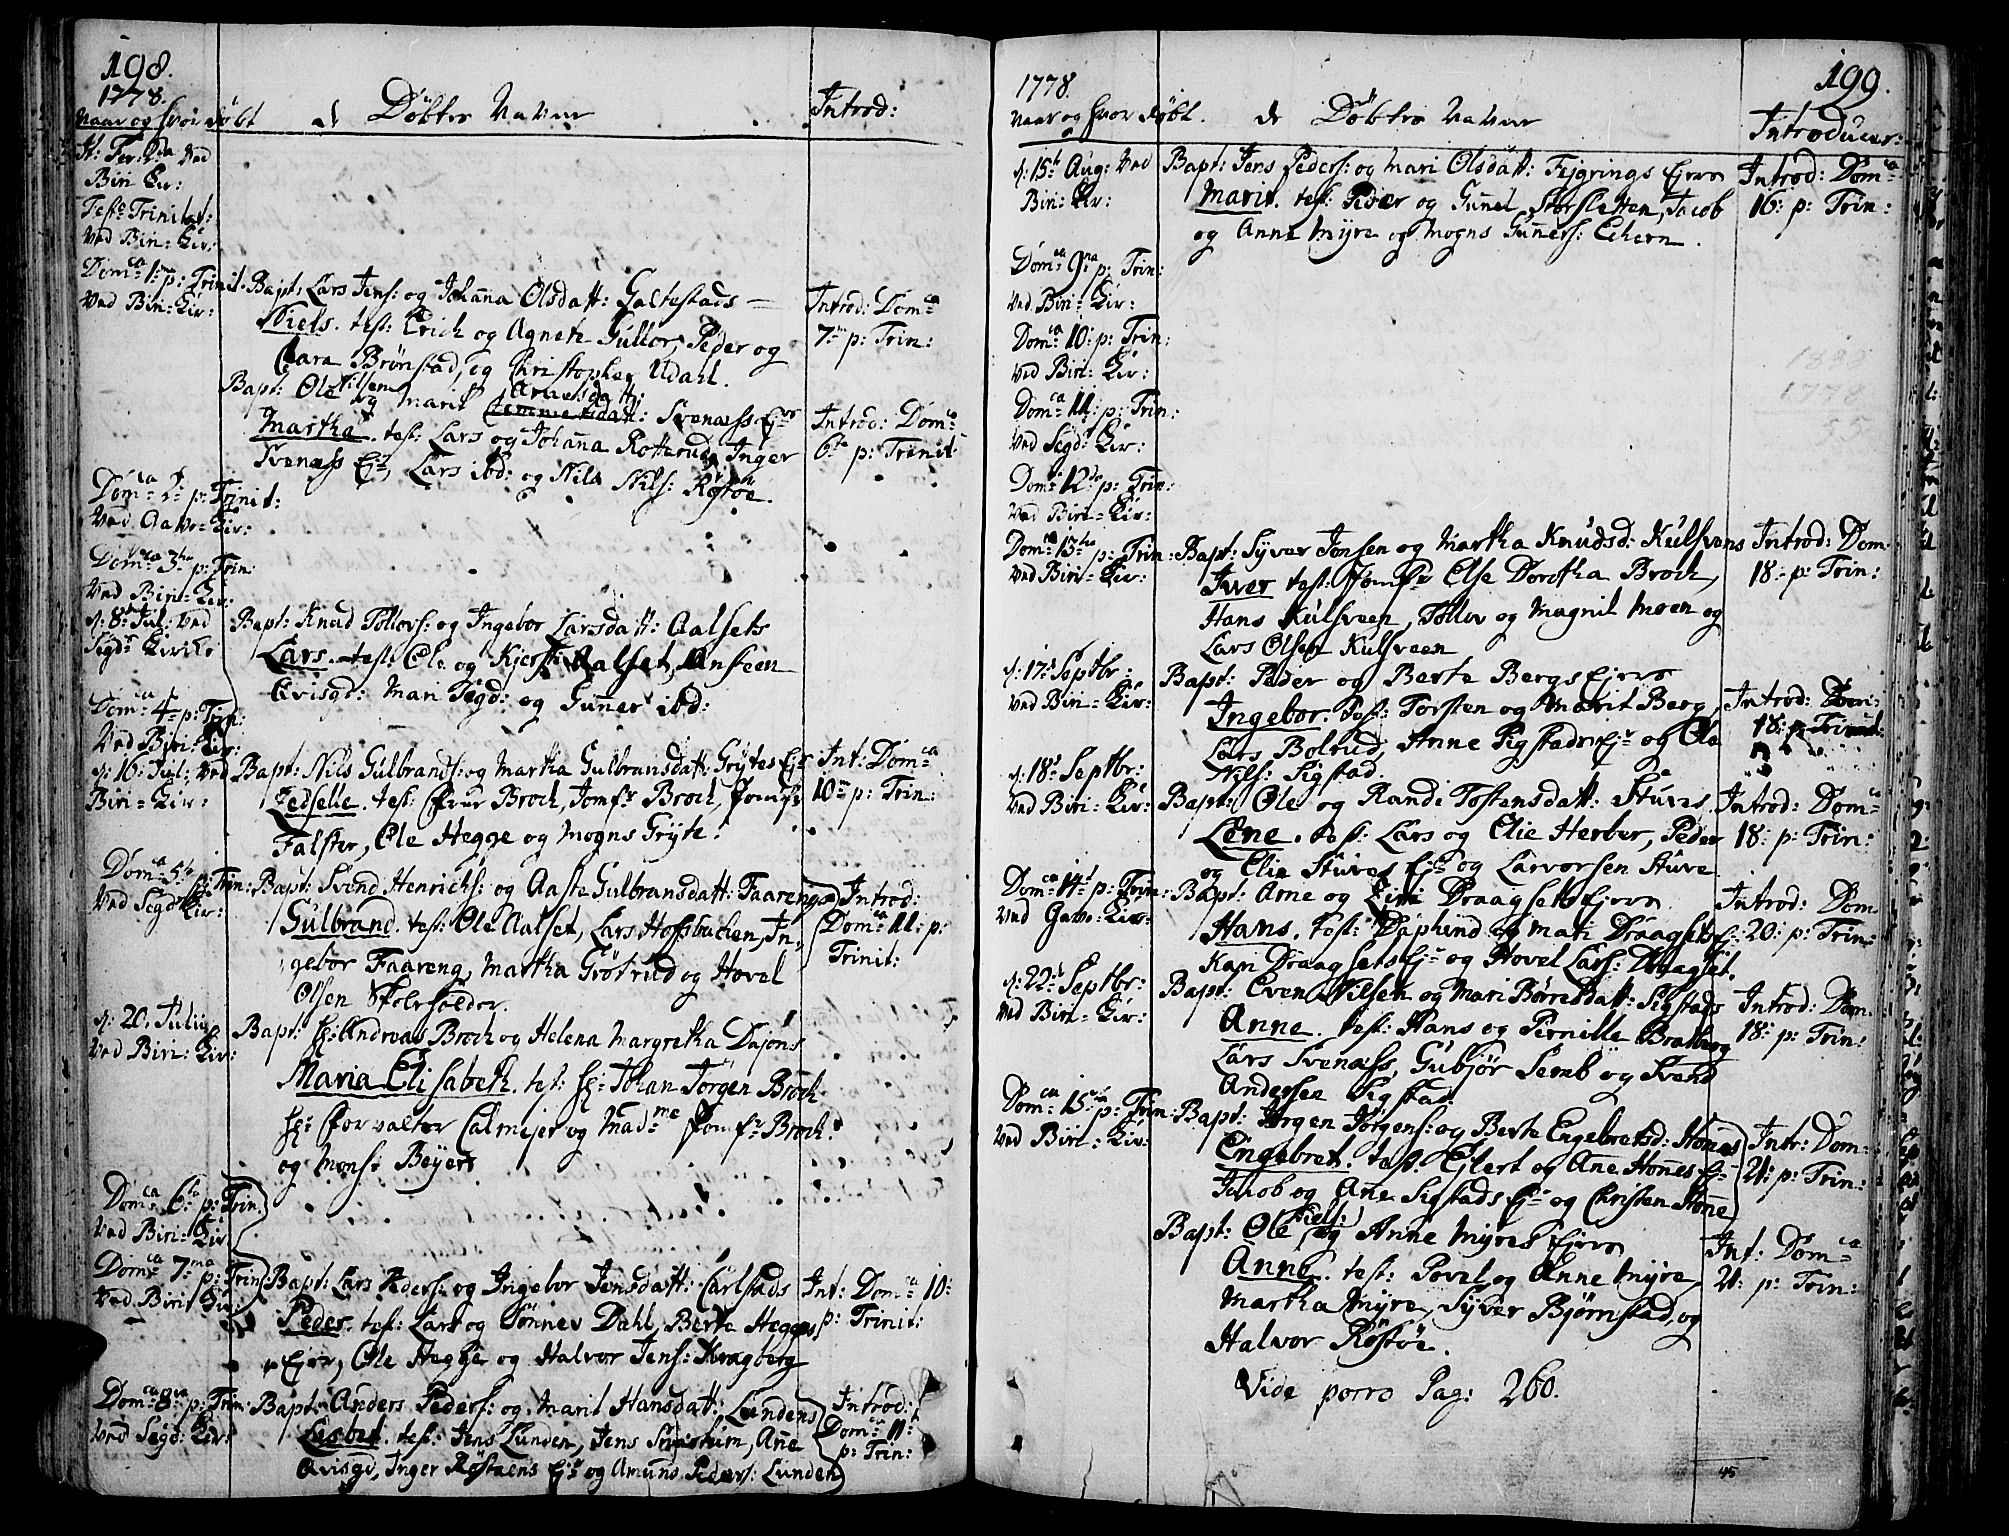 198.
1778.
Naar og hvor døbt
de Døbtes Navne
Introd:
H: Fer: 2da Ved
Biri Kir:
Festo Trinitat:
Ved Biri-Kir:
Dom: ca 1: p: Trinit:
Ved Biri-Kir:
Bapt: Lars Jens: og Johana Olsdatt: Galtestads
Niels. test: Erich og Agnete Gullor, Peder og
Clara Brønstad, og Christopher Udahl.
Introd: Dom: ca
7: p: Trin:
Bapt: Ole Nilsen og Marit Arnesdatt: Svenæss Ejer
Martha. test: Lars og Johana Rotterud, Inger
Svenæss Ej: Lars ibd: og Nils Nils: Røstøe.
Introd: Dom: ca
6te p: Trinit:
Dom: ca 2: p: Trinit:
Ved Gavr-Kir:
Dom: ca 3tia p: Trin:
Ved Biri-Kir:
d: 8de Jul: Ved
Segd: Kirke
Bapt: Knud Tollovs: og Ingebor Larsdatt: Aalsets
Lars. test: Ole og Kjersti Aalset, Ansteen
Avisgd: Mari Segd: og Guner ibd:
Dom: ca 4: p: Trin:
Ved Biri-Kir:
d: 16: Jul: Ved
Biri-Kir:
Bapt: Nils Gulbrands: og Martha Gulbransdatt: Grytes Ejer
Zedselle. test: Frue Broch, Jomfr Broch, Jomfr
Falster, Ole Hegge og Mogns Gryte.
Int: Dom: ca
10: p: Trin:
Dom: ca 5te p: Trin:
Ved Segd: Kir:
Bapt: Svend Henrichs: og Aaste Gulbransdatt: Faarengs
Gulbrand. test: Ole Aalset, Lars Hoffsbacken, In-
gebor Faareng, Martha Grøtrud og Hovel
Olsen Skoleholder.
Introd:
Dom: ca 11: p:
Trinit:
d: 20: Julii
Ved Biri-Kir:
Bapt: Hr: Andreas Broch og Helena Margretha Dajons
Maria Elisabeth. test: Hr: Johan Jørgen Broch
Hr: Forvalter Calmejer og Mad: me Jomfr Broch
og Mons: Beyer
Dom: ca 6te p: Trin:
Ved Biri-Kir:
Dom: ca 7ma p: Trin:
Ved Biri-Kir:
Bapt: Lars Peders: og Ingebor Jensdatt: Carlstads
Peder. test: Lars og Sønnev Dahl, Berte Hegges
Ejer, Ole Hegge og Halvor Jens: Kragberg
Int: Dom: ca 10:
p: Trinit:
Dom: ca 8va p: Trin:
Ved Segd: Kir:
Bapt: Anders Peders: og Marit Hansdatt: Lundens
Lisbet. test: Jens Lunden, Jens Svastuim, Ane
Avisgd, Inger Røstuens Ej: og Amund Peders: Lunden
Introd:
Dom: ca 11:
p: Trin:
1778.
199.
Naar og hvor døbt.
de Døbtes Navne
Introducer:
d: 15de Aug: Ved
Biri-Kir:
Bapt: Jens Peders: og Mari Olsdatt: Fejgrings Ejern
Marit. test: Peder og Gunel Storsletten, Jacob
og Anne Myre og Mogns Guners: Echern.
Introd: Dom: ca
16: p: Trin:
Dom: ca 9na p: Trin:
Ved Biri-Kir:
Dom: ca 10: p: Trin:
Ved Biri-Kir:
Dom: ca 11: p: Trin:
Ved Segd: Kir:
Dom: ca 12: p: Trin:
Ved Biri-Kir:
Dom: ca 13tia p: Trin:
Ved Biri-Kir:
Bapt: Syver Jonsen og Martha Knudsd: Kulsvens
Iver test: Jomfr Else Dorotha Broch,
Hans Kulsveen, Tollov og Magnil Moen og
Lars Olsen Kulsveen
Introd: Dom:
18: p: Trin:
d: 17de Septbr:
Ved Biri-Kir:
Bapt: Peder og Berte Bergs Ejern
Ingebor. test: Torsten og Marit Berg,
Lars Bolrud, Anne Sigstads Ej: og Ole
Nils: Sigstad.
Introd: Dom:
18: p: Trinit:
d: 18de Septbr:
Ved Biri-Kir:
Bapt: Ole og Randi Tostensdatt: Stuves
Lene. test: Lars og Elie Herber, Peder
og Elie Stuves Ej: og Larvorsen Stuve.
Introd: Dom: ca
18: p: Trin:
Dom: ca 14: p: Trin:
Ved Gavr-Kir:
Bapt: Arne og Siri Draagsets Ejern.
Hans. test: Daphind og Mari Draagsets Ej:
Kari Draagsets Ej: og Hovel Lars: Draagset.
Introd: Dom:
20: p: Trin:
d: 22de Septbr:
Ved Biri-Kir:
Bapt: Even Nilsen og Mari Børresdatt: Sigstads
Anne. test: Hans og Pernille Bratberg
Lars Svenæss, Gubjør Semb og Svend
Andersen Sigstad
Introd: Dom:
18: p: Trin:
Dom: ca 15: p: Trin:
Ved Biri-Kir:
Bapt: Jørgen Jørgens: og Berte Engebretsd: Hønes
Engebret. test: Ejlert og Ane Hønes Ej:
Jacob og Ane Sigstads Ej: og Christen Høne
Intr: Dom:
21: p: Trin:
Bapt: Ole Niels: og Anne Myres Ejern
Anne. test: Povel og Anne Myre,
Martha Myre, Syver Bjørnstad, og
Halvor Røstøe.
Int: Dom: ca
21: p: Trin:
Vide porro Pag: 260.
45